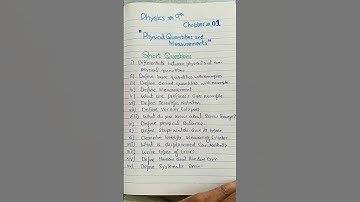 Physics # 9th
Chapter # 01
"Physical Quantities and
Measurements"
Short Questions
i) Differentiate between physical and non
physical quantities
ii) Define base quantities with examples
iii) Define derived quantities with example
iv) Define Measurement
v) What are prefixes? Give example
vi) Define Scientific Notation
vii) Define Vernier Calipers
viii) What do you know about Screw Gauge?
ix) Define Physical Balance
x) Define Stop Watch Give its types
xi) Describe Measuring Cylinder
xii) What is displacement Can Method
xiii) Write types of Errors
xiv) Define Human and Random Error
xv) Define Systematic Error